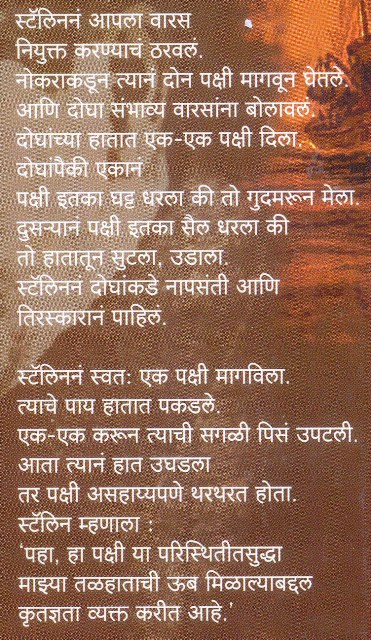 स्टॅलिननं आपला वारस
नियुक्त करण्याचं ठरवलं.
नोकराकडून त्यानं दोन पक्षी मागवून घेतले.
आणि दोघा संभाव्य वारसांना बोलावलं.
दोघांच्या हातात एक-एक पक्षी दिला.
दोघांपैकी एकानं
पक्षी इतका घट्ट धरला की तो गुदमरून मेला.
दुसऱ्यानं पक्षी इतका सैल धरला की
तो हातातून सुटला, उडाला.
स्टॅलिननं दोघांकडे नापसंती आणि
तिरस्कारानं पाहिलं.
स्टॅलिननं स्वत: एक पक्षी मागविला.
त्याचे पाय हातात पकडले.
एक-एक करून त्याची सगळी पिसं उपटली.
आता त्यानं हात उघडला
तर पक्षी असहाय्यपणे थरथरत होता.
स्टॅलिन म्हणाला :
‘पहा, हा पक्षी या परिस्थितीतसुद्धा
माझ्या तळहाताची ऊब मिळाल्याबद्दल
कृतज्ञता व्यक्त करीत आहे.’